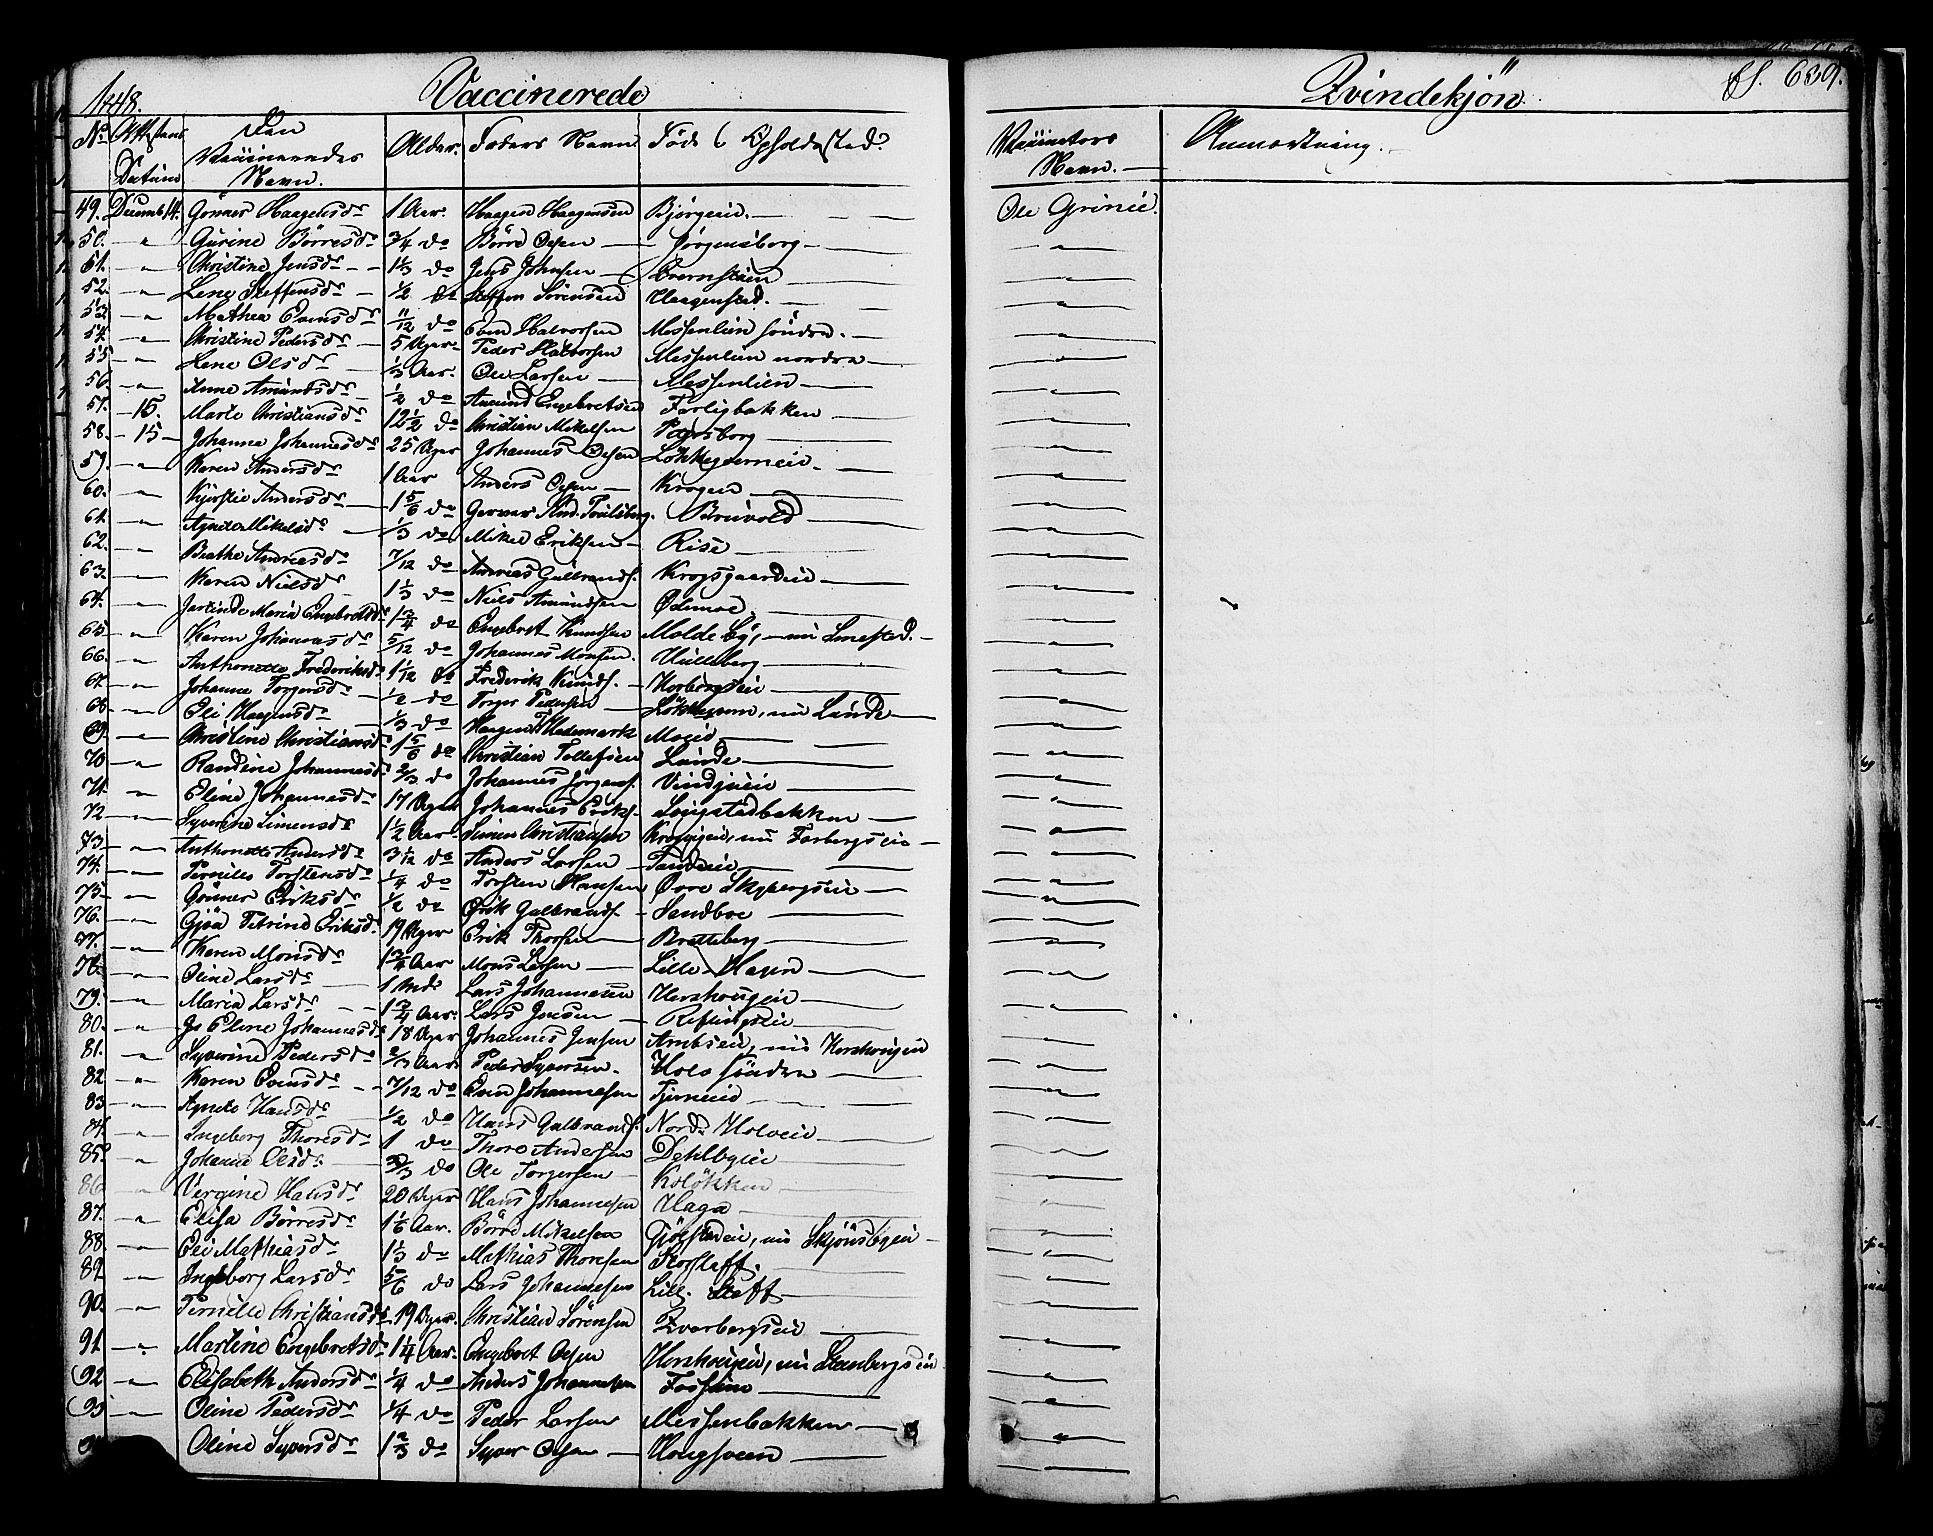 1848. Vaccinerede Qvindekjön. 639.
No. Attestens Datum Den Vaccineredes Navn. Alder. Faders Navn Födt & Opholdssted. Vaccinators Navn. Anmærkning.
49. Decemb. 14. Gönner Haagensdr 1 Aar. Haagen Haagensen Bjørgeie. Ole Grinie.
50. " Gurine Börresdr 3/4 do Börre Olsen Jörgensborg "
51. " Christine Jensdr 1 1/3 do Jens Johnsen "
52. " Lene Steffensdr 1/2 do Steffen Sörensen Haagenstad. "
53. " Mathea Evensdr 11/12 do Even Halvorsen Messenlien söndre. "
54. " Christine Pedersdr 5 Uger Peder Halvorsen Messenlien nordre "
55 " Lene Olsdr 1/3 Aar. Ole Larsen Messenlien "
56. " Anne Amundsdr 1/2 do Amund Engebretsen Farligbakken "
57. 15. Marte Christiansdr 12 1/2 do Christian Mikelsen "
58. 15 Johanne Johannesdr 25 Uger Johannes Olsen "
59. " Karen Andersdr 1 Aar Anders Olsen Krogen "
60. " Kjerstie Andersdr 1 5/6 do Bruvold "
61. " Agnete Mikelsdr 1/3 do Mikel Eriksen Rise "
62. " Beathe Andreasdr 7/12 do Andreas Gulbrands. Krogsgaardeie "
63. " Karen Nielsdr 1 1/3 do Niels Amundsen Ödemoe "
64. " Maria Engebretsdr 1 3/4 do Engebret Knudsen Molde By, nu "
65. " Karen Johannesdr 5/12 do Johannes Monsen. Hulleberg "
66. " Anthonette Frederiksdr 1 1/12 do Frederik Knuds. "
67. " Johanne Torgersdr 1/2 do Torger Pedersen nu Lunde "
68 " Eli Haagensdr 1/3 do Haagen Hedemark Moeie "
69. " Christine Christiansdr 1 5/6 do Christian Tollefsen Lunde "
70 " Randine Johannesdr 2/3 do Johannes Jörgens. "
71. " Eline Johannesdr 17 Uger Johannes Eriks. "
72 " Syverine Simensdr 1 1/2 Aar. Simen Christiansen nu Farbergseie "
73 " Anthonette Andersdr 3 1/12 do Anders Larsen "
74. " Pernille Torstensdr 1/4 do Torsten Hansen Övre Skybergseie "
75 " Gönner Eriksdr 1/2 do Erik Gulbrands. Sandboe "
76. " Gjöa Petrine Eriksdr. 19 Uger Erik Thorsen Bretteberg "
77. " Karen Monsdr 1 3/4 Aar Mons Larsen Lille Hagen "
78. " Oline Larsdr 1 Md. Lars Johannesen Hershougeie "
79. " Maria Larsdr 1 3/4 Aar. Lars Jensen "
80. " Eline Johannesdr 18 Uger Johannes Jensen nu Hershougeie "
81. " Syverine Pedersdr 2/3 Aar Peder Syversen. Hole söndre "
82 " Karen Evensdr 7/12 do Even Johannesen Tjerneeie "
83 " Agnete Hansdr 1/2 do Hans Gulbrands. Nord. Holveie "
84. " Ingeborg Thoresdr 1 do Thore Andersen "
85. " Johanne Olsdr. 2/3 do Ole Torgersen Kolökken "
86 " Vergine Hansdr 20 Uger Hans Johannesen Haga "
87. " Elisa Börresdr 1 1/6 Aar. Börre Mikelsen nu "
88. " Eli Mathiasdr 1 1/3 do Mathias Thoresen Storstaff. "
89. " Ingeborg Larsdr 5/6 do Lars Johannesen Lill. Staff "
90. " Pernille Christiansdr 19 Uger. Christian Sörensen "
91 " Martine Engebretsdr 1 1/4 Aar. Engebret Olsen Hershougeie, nu "
92 " Elisabeth Andersdr 1/4 do Anders Johannesen Fossum "
93 " Oline Pedersdr 1/4 do Peder Larsen Messenbakken "
Oline Syversdr 1 2/3 do Syver Olsen Hougsveen "